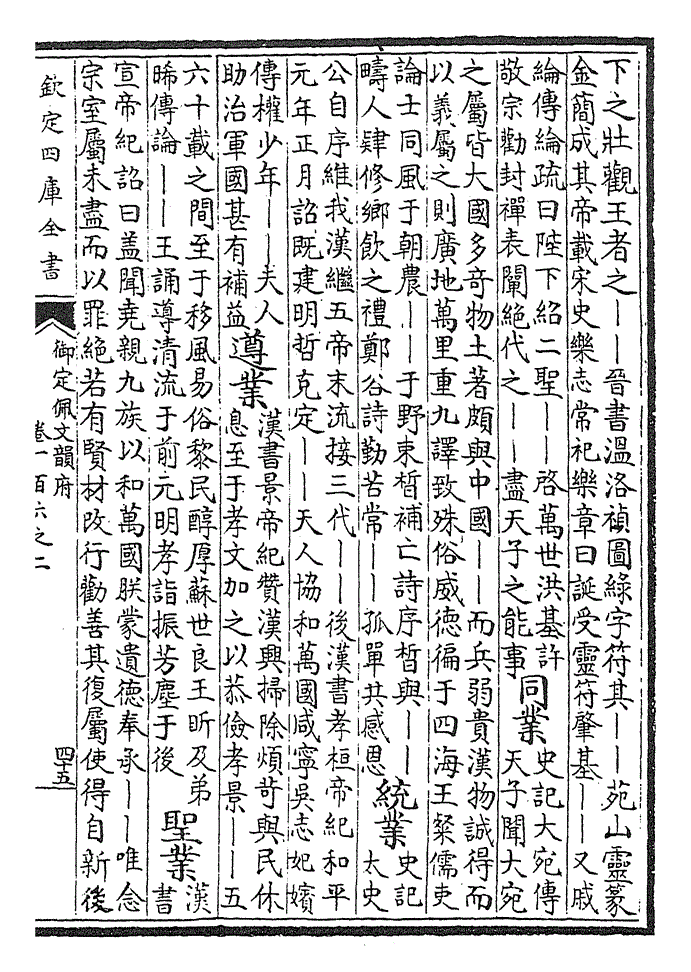 下之壯觀王者之——晉書溫洛禎圖綠字符其——苑山靈篆
金簡成其帝載宋史樂志常祀樂章曰誕受靈符肇基——又戚
綸傳綸疏曰陛下紹二聖——啓萬世洪基許
敬宗勸封禪表闡絕代之——盡天子之能事
同業
史記大宛傳
天子聞大宛
之屬皆大國多奇物土著頗與中國——而兵弱貴漢物誠得而
以義屬之則廣地萬里重九譯致殊俗威德徧于四海王粲儒吏
論士同風于朝農——于野束晳補亡詩序晳與——
疇人肄修鄉飲之禮鄭谷詩勤苦常——孤單共感恩
統業
史記
太史
公自序維我漢繼五帝末流接三代——後漢書孝桓帝紀和平
元年正月詔既建明哲克定——天人協和萬國咸寧吳志妃嬪
傳權少年——夫人
助治軍國甚有補益
遵業
漢書景帝紀贊漢興掃除煩苛與民休
息至于孝文加之以恭儉孝景——五
六十載之間至于移風易俗黎民醇厚蘇世良王昕及弟
晞傳論——王誦尊清流于前元明孝詣振芳塵于後
聖業
漢
書
宣帝紀詔曰盖聞堯親九族以和萬國朕蒙遺德奉承——唯念
宗室屬未盡而以罪絕若有賢材改行勸善其復屬使得自新後
欽定四庫全書
御定佩文韻府
卷一百六之二
四十五